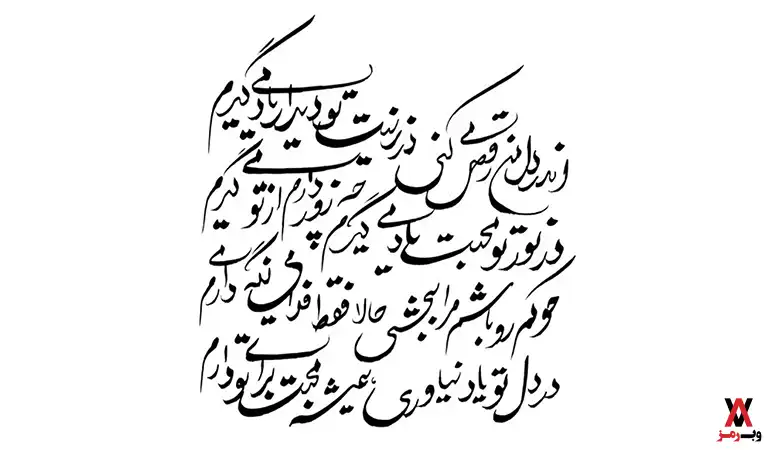 اندر دل من رقص می کنی در رنت تو دیدار یاد می گیرم
در تو محبت یاد می گیرم چه زور دارم از تو می گیرم
چو کم رو باشم مرا ببخشی حالا فقط فدا می نگه دارم
در دل تو یاد نیاوری، همیشه محبت برای تو دارم
وب رمز